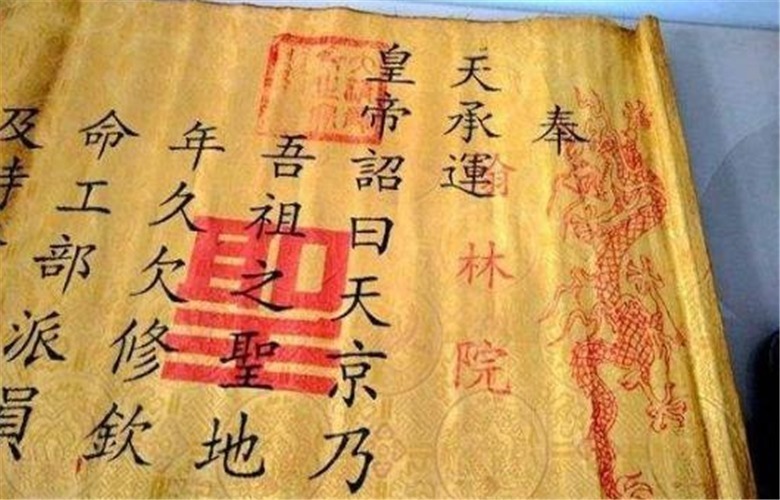 奉
天承運
翰林院
皇帝詔曰天京乃
吾祖之聖地
年久欠修欽
命工部派員
及時
聖